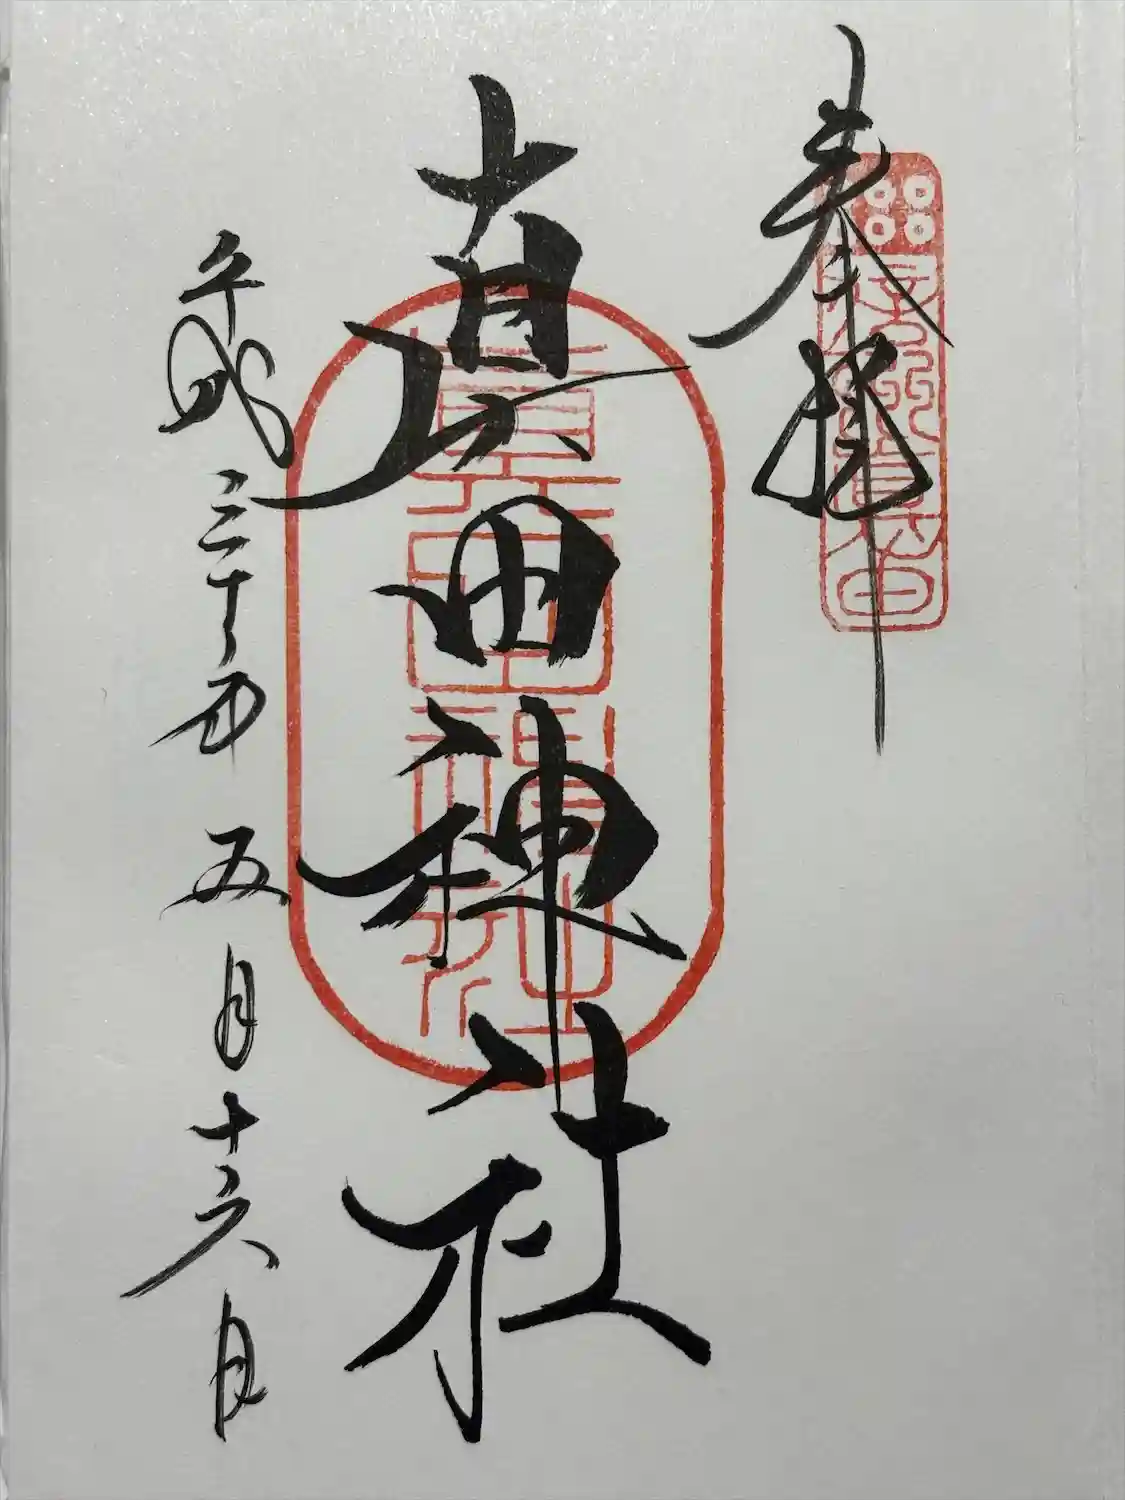 奉拝
眞田神社
眞田神社
平成三十年五月十六日